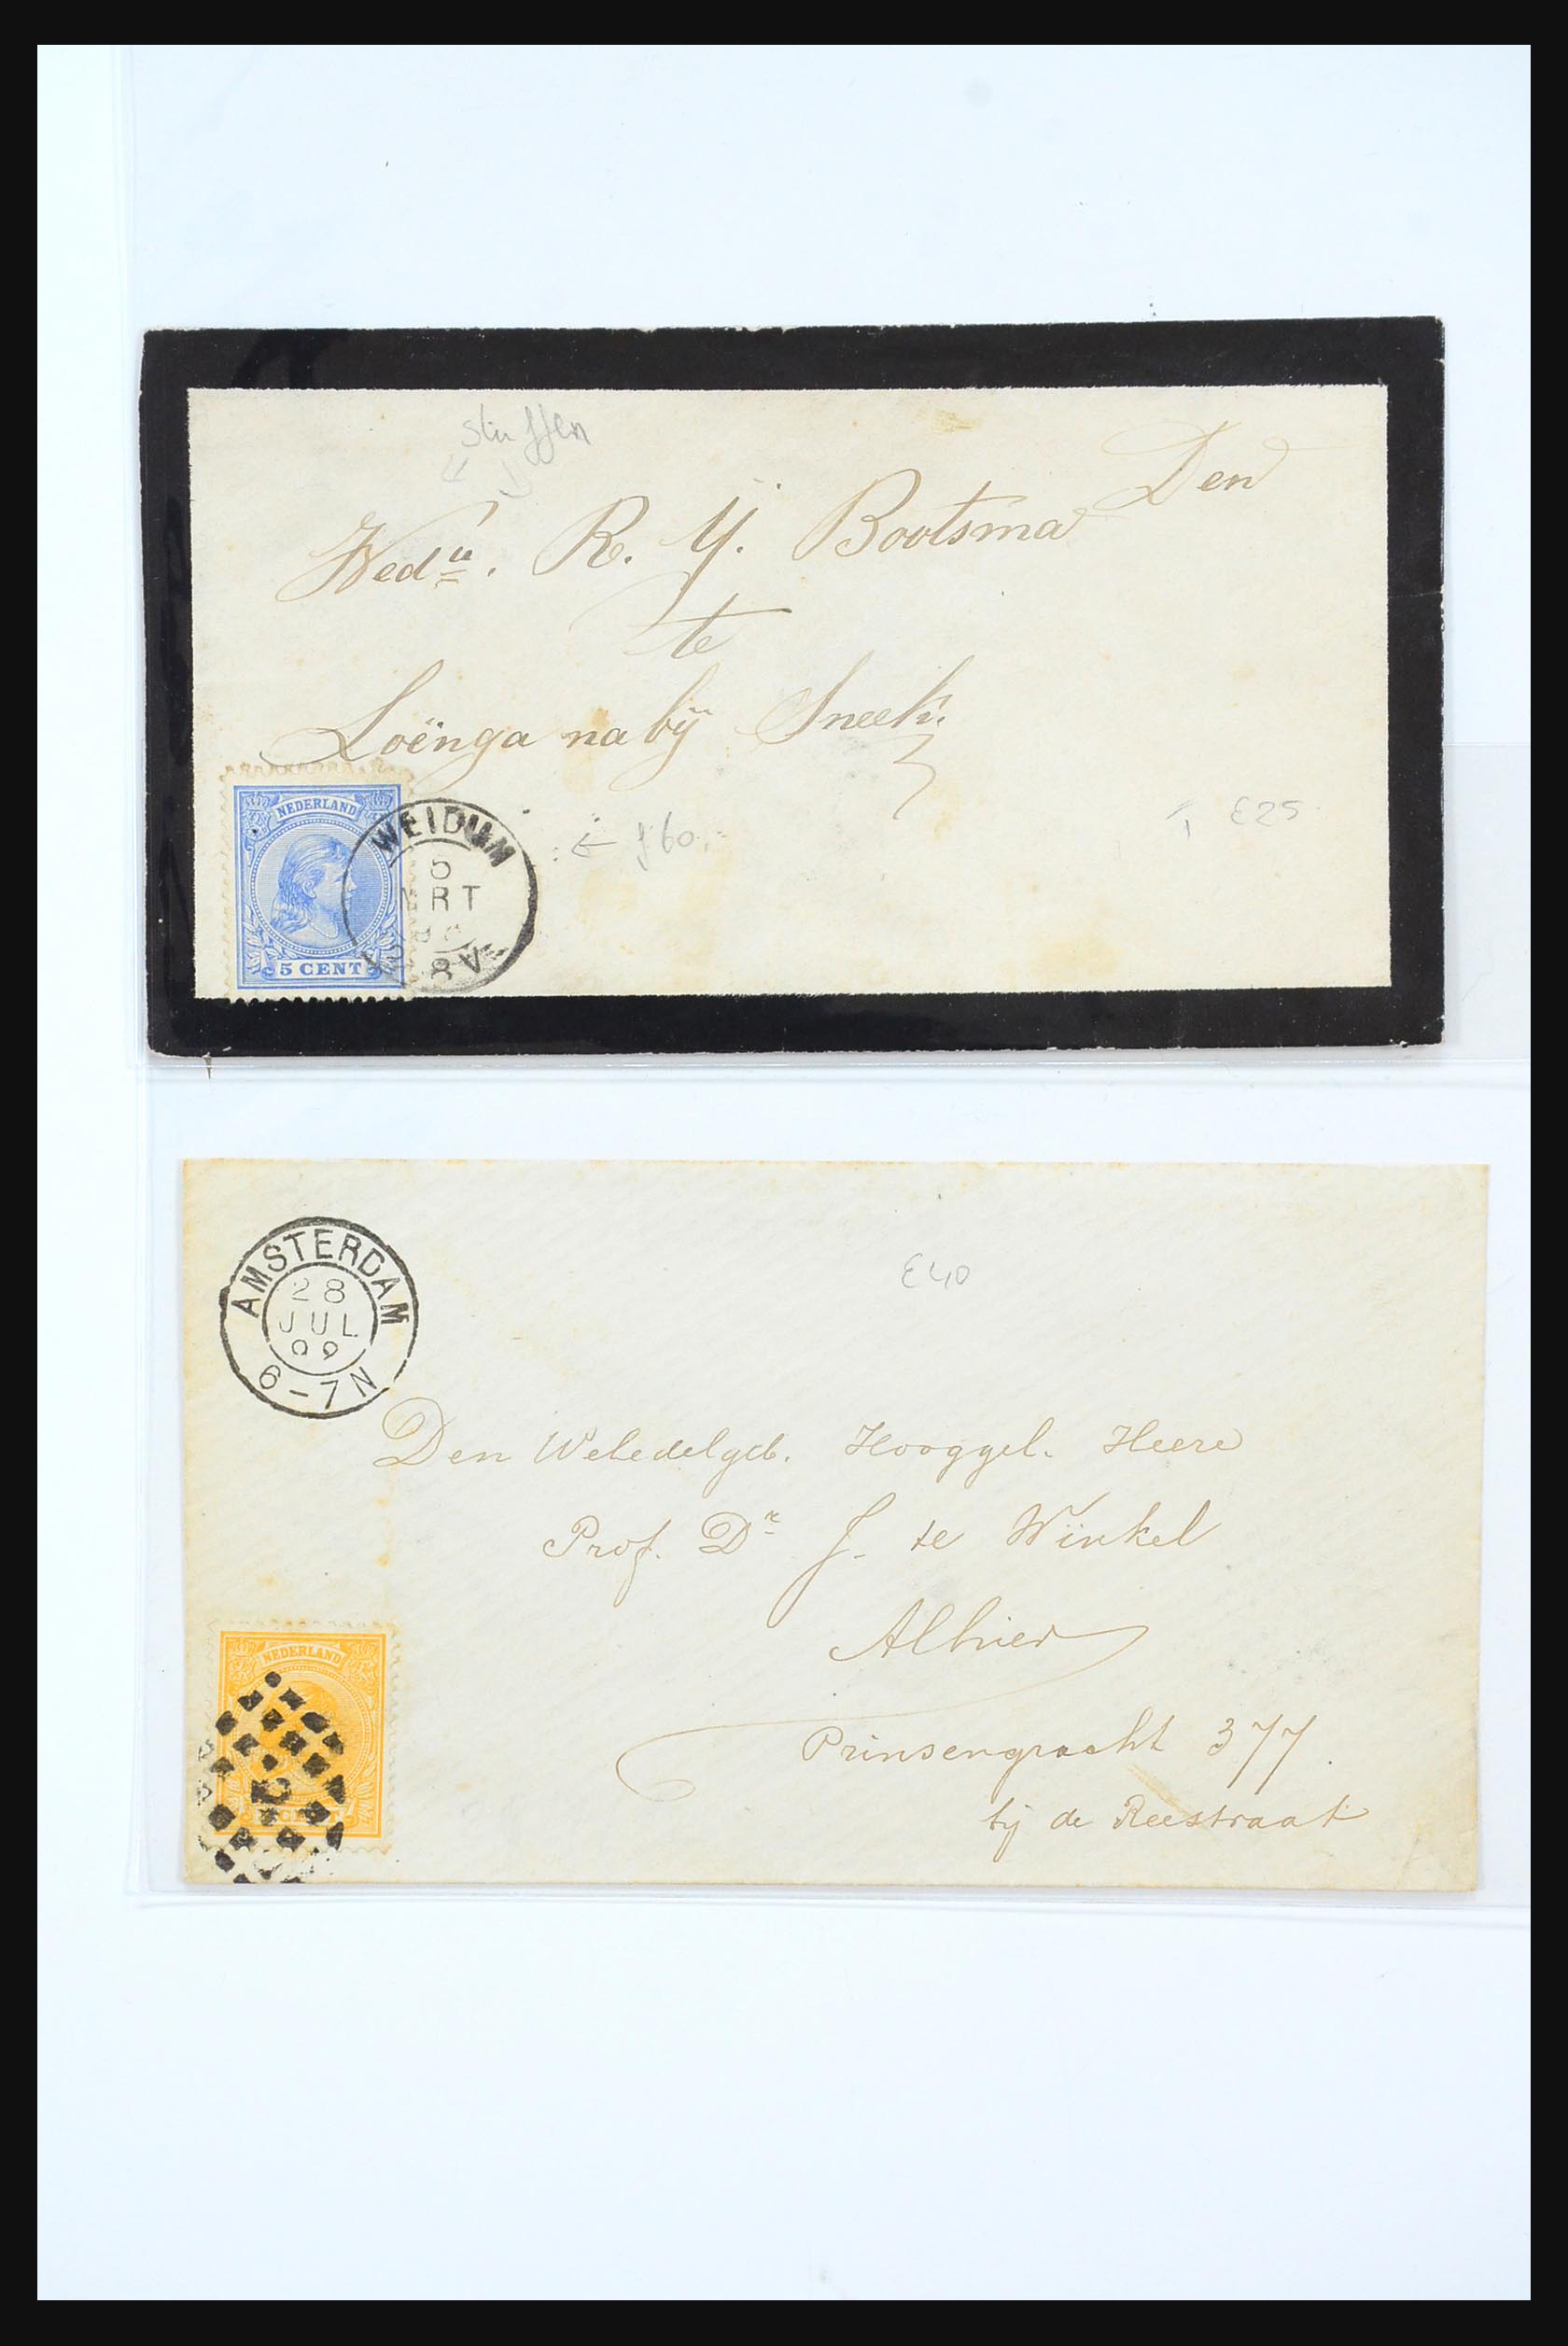 stuffen
Den
Wedᵉ. R. Y. Bootsma
te
Loënga nabÿ Sneek.
NEDERLAND
5 CENT
WEIDUM
5
MRT
8V
← f 60,-
↑ £25
AMSTERDAM
28
JUL
99
6-7N
£40
Den Weledelgeb. Hooggel. Heere
Prof. Dr J. te Winkel
Alhier
Prinsengracht 377.
bij de Reestraat
NEDERLAND
CENT